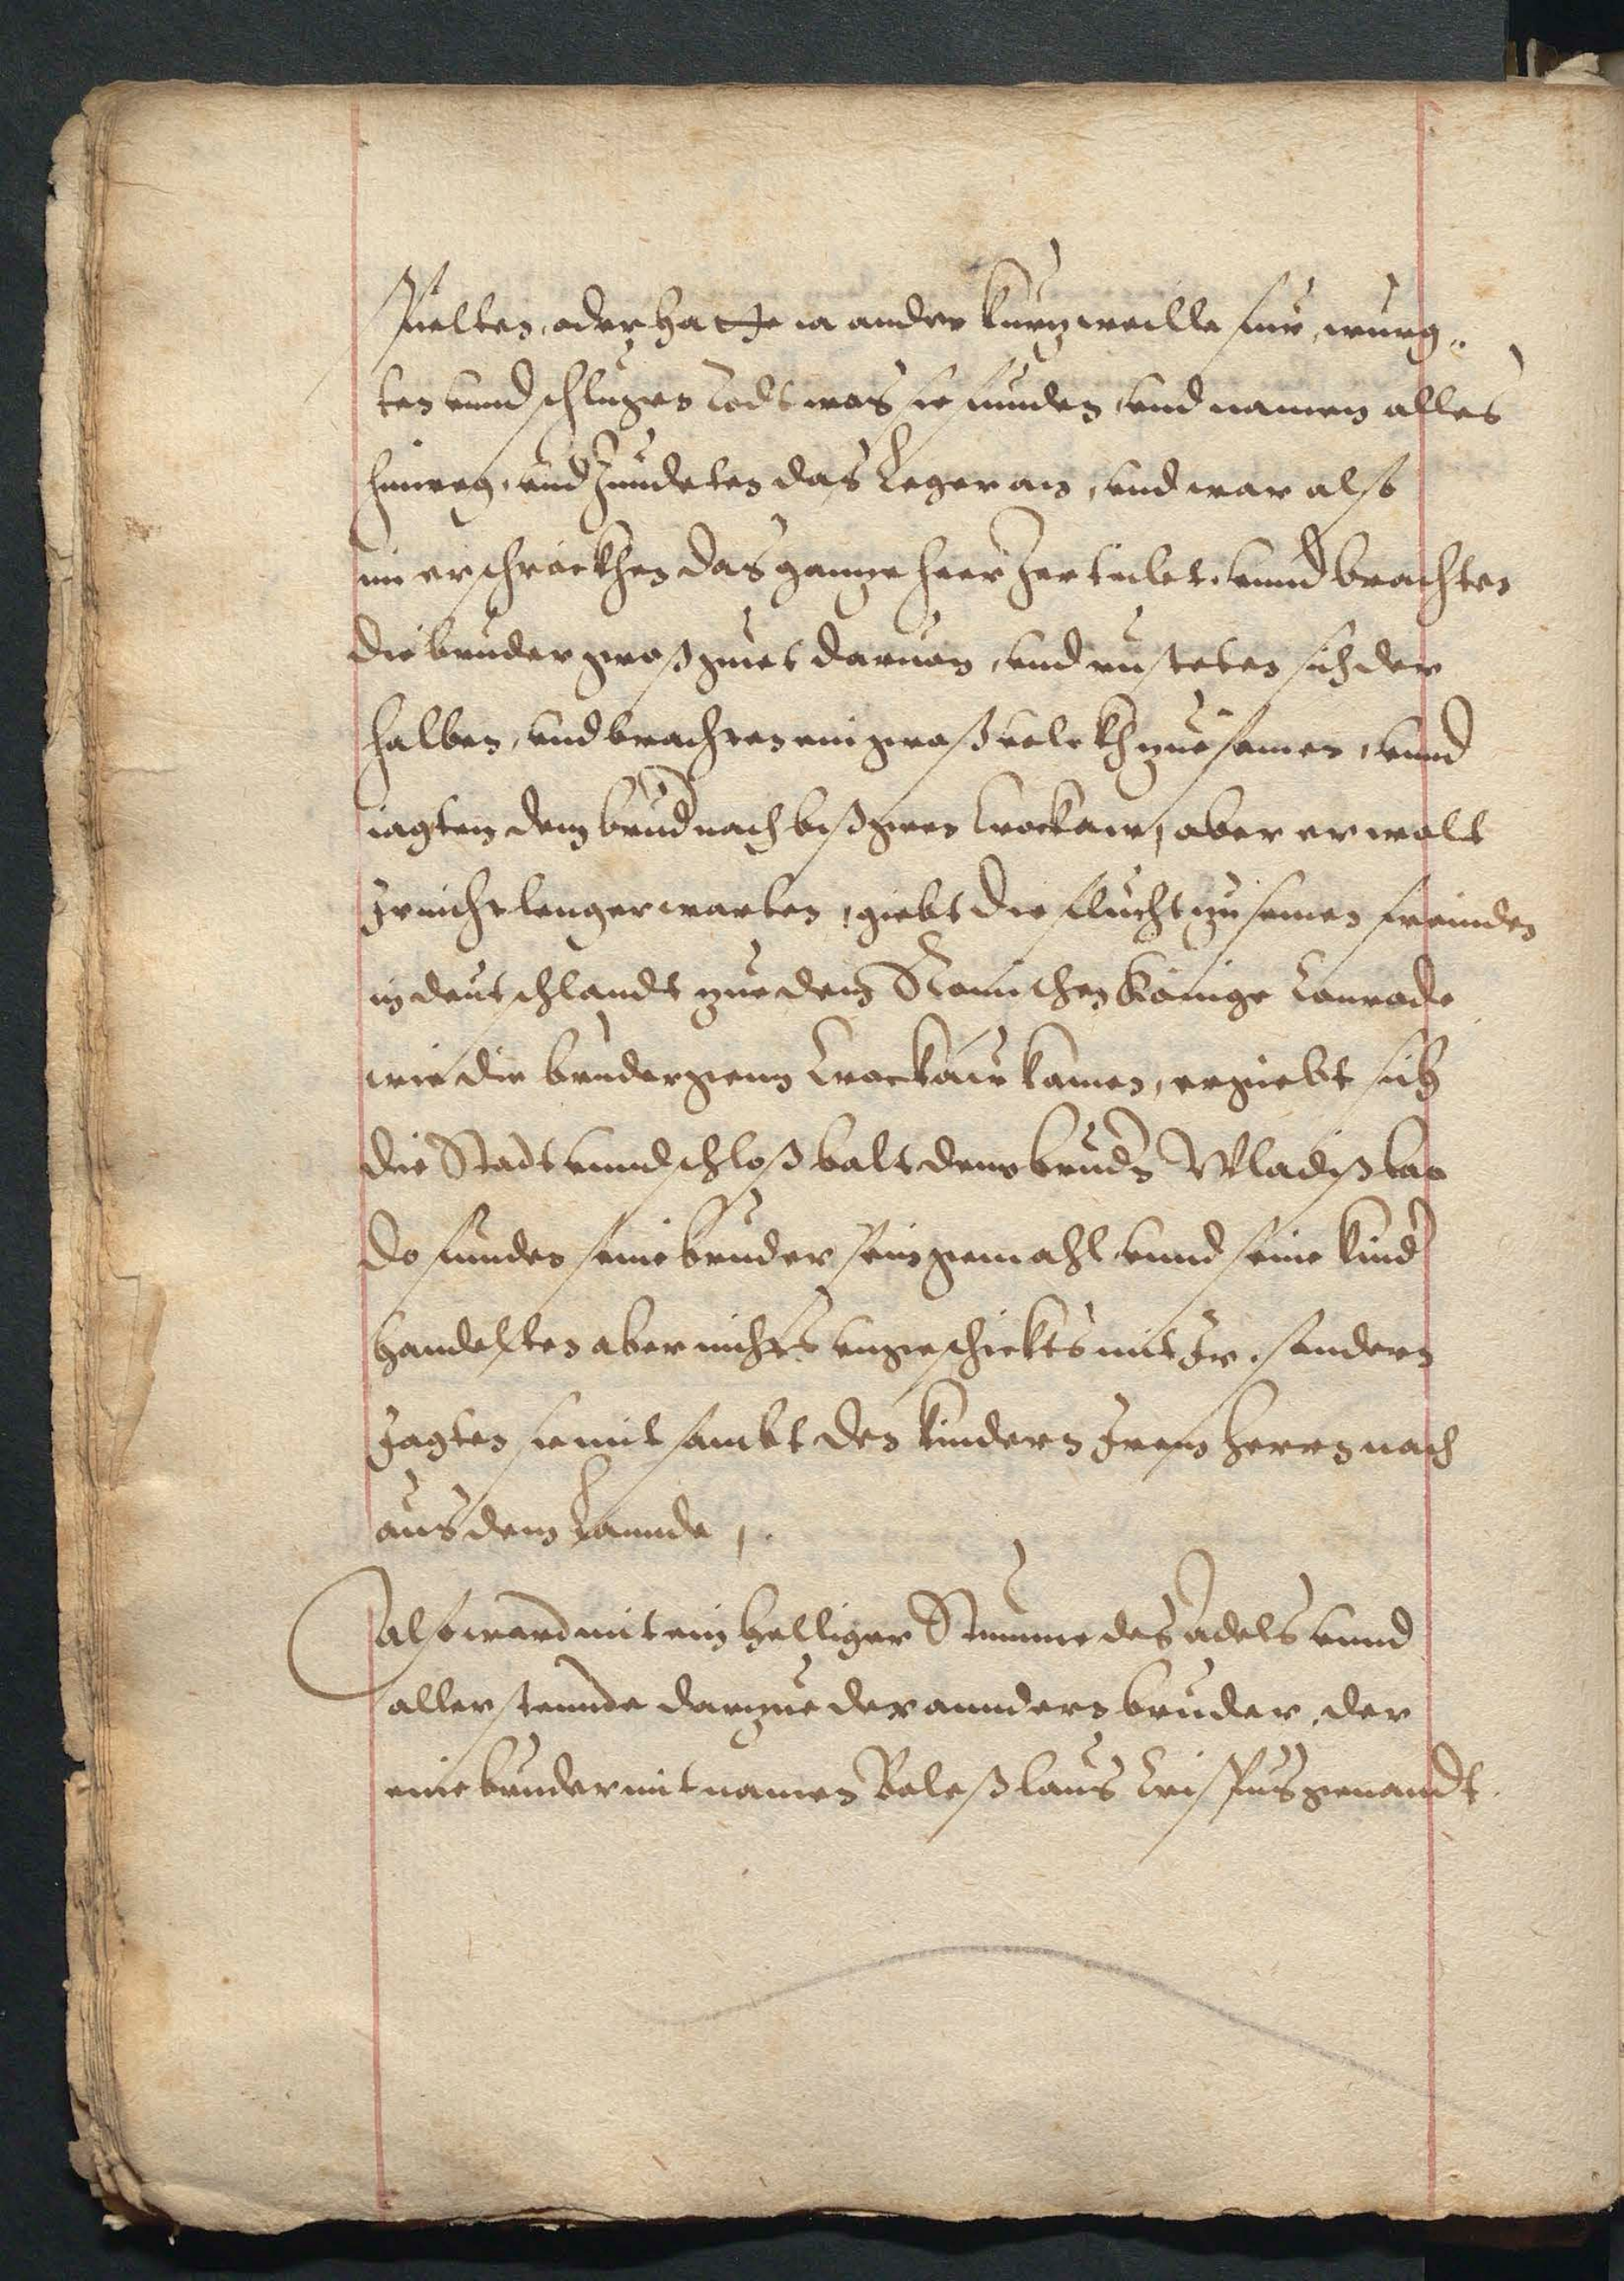 spielten, oder hatte in ander kurzweille fur, wurg„
ten vnnd schlugen todt was sie funden, vnd namen alles
hinweg, vnd Zundeten das Leger an, vnd war also
im erschrockhen das gannze heer Zerteilet, vnnd brachten
die bruder gross guet daruon, vnd rusteten sich der
halben, vnd brachten ein groß volckh zue samen, vnnd
iagten dem brud nach biß gen Crockaw, aber er wolt
Jr nicht lenger warten, giebt die flucht zu seinen freinden
in deutschlandt zue dem Romischen Könige Conrado
wie die bruder genn Crockaw kamen, ergiebt sich
die Stadt vnnd schloß balt dem brudr Wladißlao
do funden seine bruder sein gemahl vnnd seine kindr
handelten aber nichts vngeschickts mit Jr, sondern
Jagten sie mit sambt den kindern Jrem herrn nach
aus dem Lannde,.
also ward mit ein helliger Stimme des adels vnnd
aller stennde darzue der anndern bruder, der
eine bruder mit namen Boleßlaus Crispus genandt.